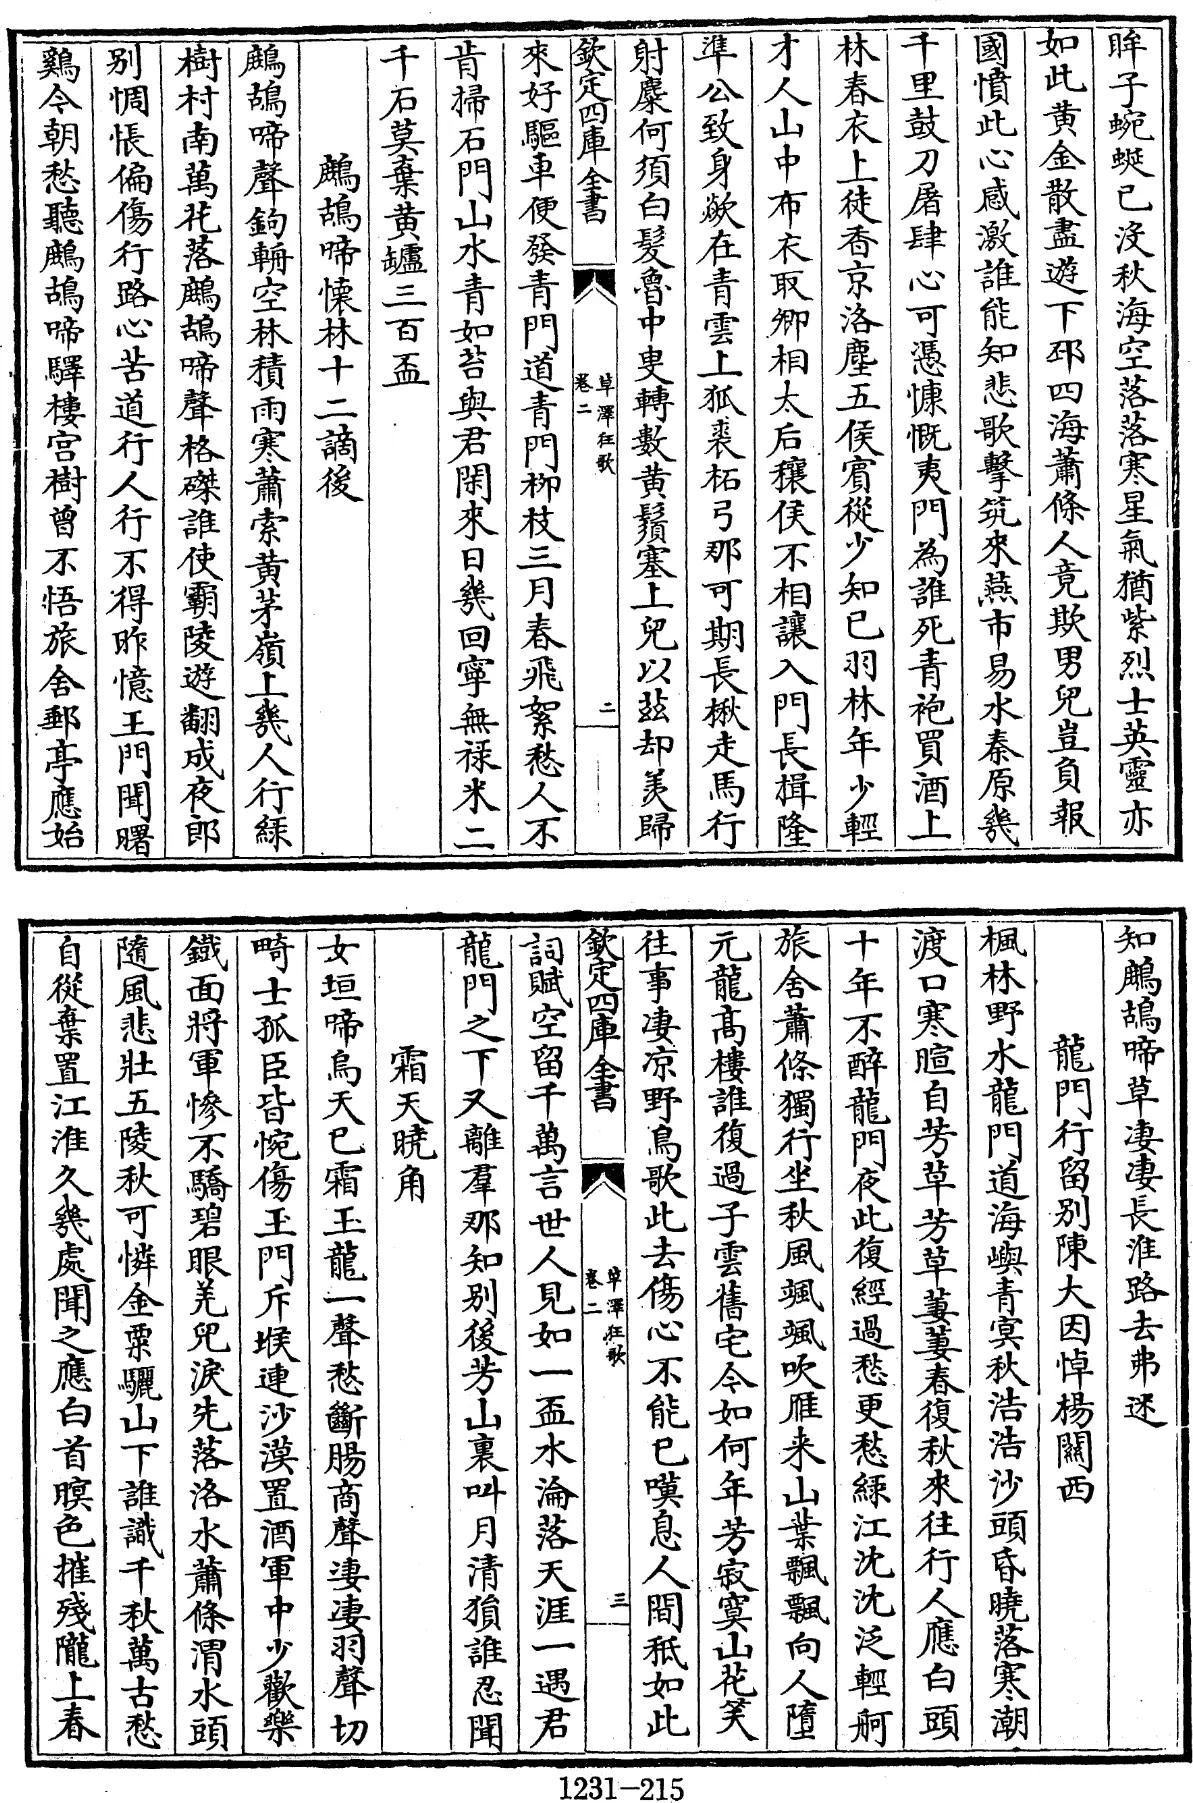 眸子蜿蜒已沒秋海空落落寒星氣猶紫烈士英靈亦
如此黄金散盡遊下邳四海蕭條人竟欺男兒豈負報
國憤此心感激誰能知悲歌擊筑來燕市易水秦原㡬
千里鼓刀屠肆心可憑慷慨夷門為誰死青袍買酒上
林春衣上徒香京洛塵五侯賓從少知已羽林年少輕
才人山中布衣取卿相太后穰侯不相讓入門長揖隆
準公致身歘在青雲上狐裘柘弓那可期長楸走馬行
射麋何須白髮魯中叟轉數黄鬚塞上兒以兹却羨歸
欽定四庫全書
草澤狂歌
卷二
二
來好驅車便發青門道青門柳枝三月春飛絮愁人不
肯掃石門山水青如苔與君閑來日㡬回寧無禄米二
千石莫棄黄罏三百盃
鷓鴣啼懐林十二謫後
鷓鴣啼聲鉤輈空林積雨寒蕭索黄茅嶺上㡬人行緑
樹村南萬花落鷓鴣啼聲格磔誰使霸陵遊翻成夜郎
别惆悵偏傷行路心苦道行人行不得昨憶王門聞曙
鷄今朝愁聽鷓鴣啼驛樓宫樹曾不悟旅舍郵亭應始
知鷓鴣啼草凄凄長淮路去弗迷
龍門行留别陳大因悼楊闗西
楓林野水龍門道海嶼青㝠秋浩浩沙頭昏曉落寒潮
渡口寒暄自芳草芳草萋萋春復秋來往行人應白頭
十年不醉龍門夜此復經過愁更愁緑江沈沈泛輕舸
旅舍蕭條獨行坐秋風颯颯吹雁来山葉飄飄向人墮
元龍髙樓誰復過子雲舊宅今如何年芳寂寞山花笑
往事凄凉野鳥歌此去傷心不能已嘆息人間秖如此
欽定四庫全書
草澤狂歌
卷二
三
詞賦空留千萬言世人見如一盃水淪落天涯一遇君
龍門之下又離羣那知别後芳山裏叫月清猿誰忍聞
霜天曉角
女垣啼烏天已霜玉龍一聲愁斷腸商聲凄凄羽聲切
畸士孤臣皆惋傷玉門斥堠連沙漠置酒軍中少歡樂
鐵面將軍慘不驕碧眼羌兒淚先落洛水蕭條渭水頭
隨風悲壯五陵秋可憐金粟驪山下誰識千秋萬古愁
自從棄置江淮久㡬處聞之應白首暝色摧殘隴上春
1231-215